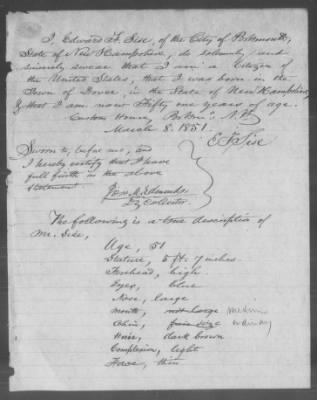 I, Edward F. Sise, of the City of Portsmouth,
State of New Hampshire, do solemnly and
sincerely swear that I am a Citizen of
the United States, that I was born in the
Town of Dover, in the State of New Hampshire,
& that I am now Fifty one years of age.
Custom House, Portsmo, N.H.
March 8. 1851.
E F Sise
Sworn to, before me, and
I hereby certify that I have
full faith in the above
statement
Dy Collector
The following is a true description of
Mr. Sise,
Age, 51
Stature, 5 ft. 7 inches
Forehead, high
Eyes, blue
Nose, large
Mouth, not large medium
Chin, fair size ordinary
Hair, dark brown
Complexion, light
Face, thin